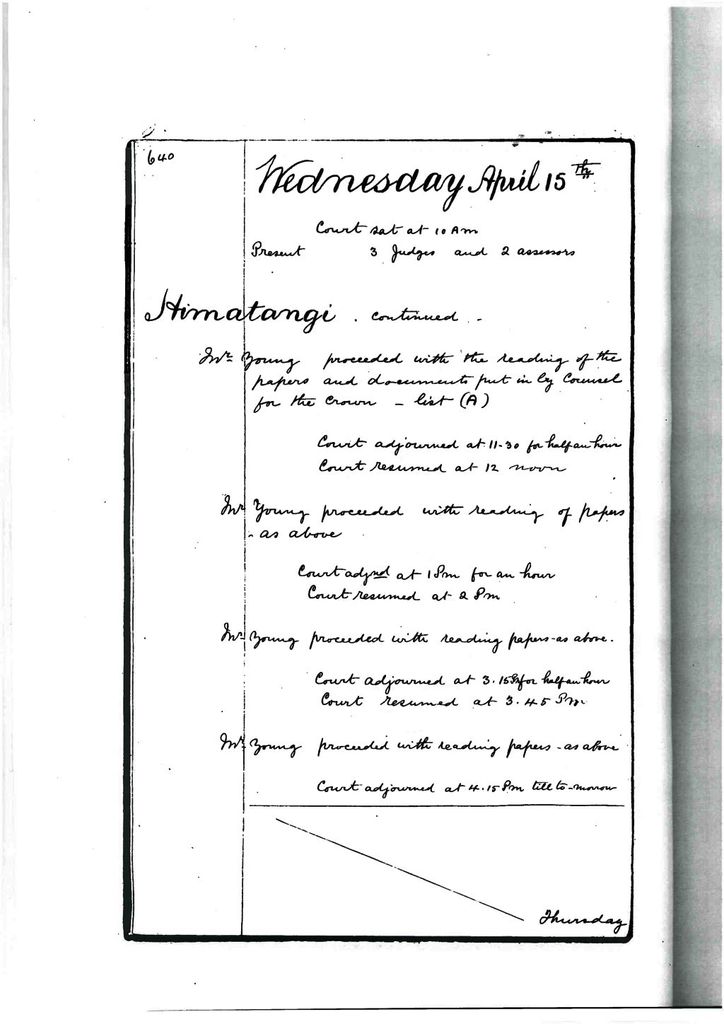 640
Wednesday April 15th
Court sat at 10 Am
Present 3 Judges and 2 assessors
Himatangi . continued . -
Mr Young proceeded with the reading of the
papers and documents put in by Counsel
for the Crown - list (A)
Court adjourned at 11-30 for half an hour
Court resumed at 12 noon
Mr Young proceeded with reading of papers
- as above
Court adjnd at 1 Pm for an hour
Court resumed at 2 Pm
Mr Young proceeded with reading papers - as above.
Court adjourned at 3.15 Pm for half an hour
Court resumed at 3.45 Pm
Mr Young proceeded with reading papers - as above
Court adjourned at 4.15 Pm till to-morrow
Thursday